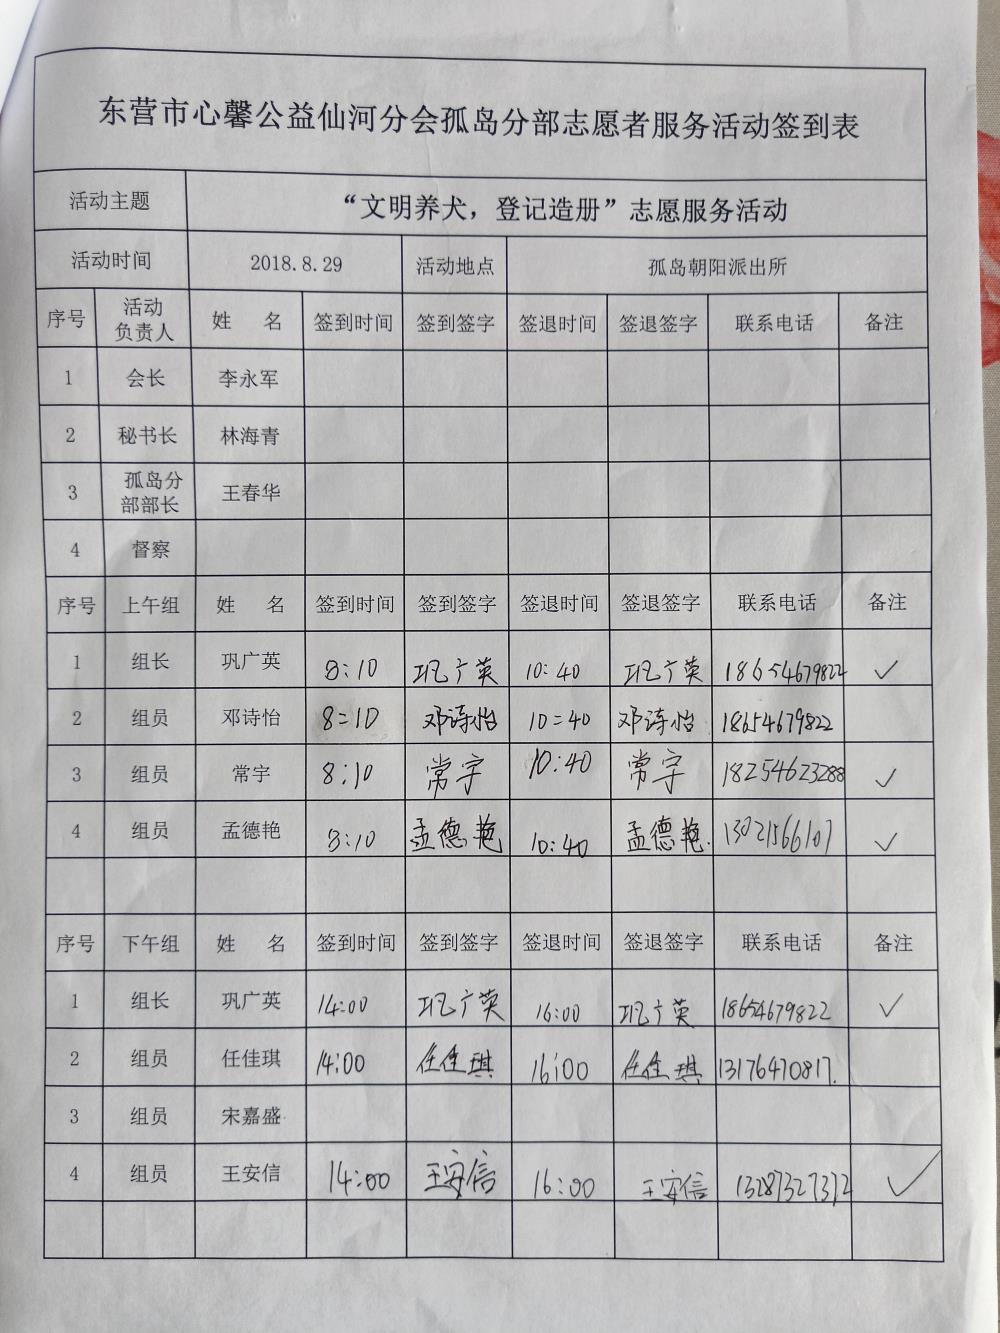 东营市心馨公益仙河分会孤岛分部志愿者服务活动签到表
活动主题 “文明养犬，登记造册”志愿服务活动
活动时间 2018.8.29 活动地点 孤岛朝阳派出所
序号 活动负责人 姓 名 签到时间 签到签字 签退时间 签退签字 联系电话 备注
1 会长 李永军
2 秘书长 林海青
3 孤岛分部部长 王春华
4 督察
序号 上午组 姓 名 签到时间 签到签字 签退时间 签退签字 联系电话 备注
1 组长 巩广英 8:10 巩广英 10:40 巩广英 18654679822 ✓
2 组员 邓诗怡 8:10 邓诗怡 10:40 邓诗怡 18654679822
3 组员 常宇 8:10 常宇 10:40 常宇 18254623288 ✓
4 组员 孟德艳 8:10 孟德艳 10:40 孟德艳 13021566107 ✓
序号 下午组 姓 名 签到时间 签到签字 签退时间 签退签字 联系电话 备注
1 组长 巩广英 14:00 巩广英 16:00 巩广英 18654679822 ✓
2 组员 任佳琪 14:00 任佳琪 16:00 任佳琪 13176470817.
3 组员 宋嘉盛
4 组员 王安信 14:00 王安信 16:00 王安信 13287327372 ✓